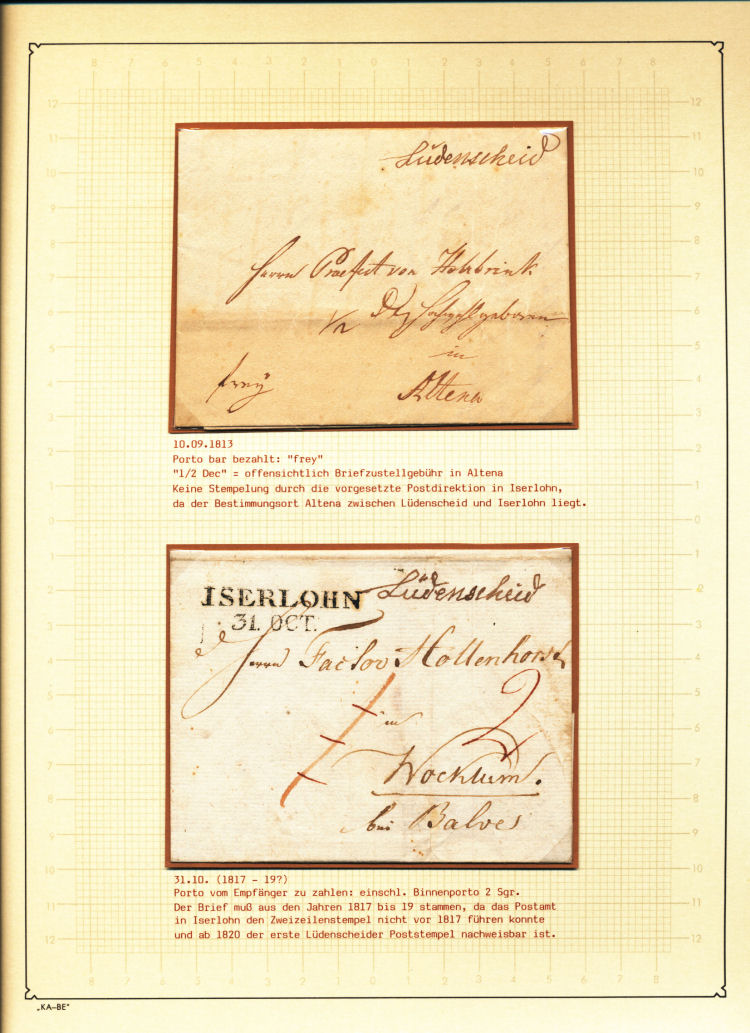 Lüdenscheid
Herrn Praefect von Holtzbrink
1/2 Dec Hochwohlgeboren
in
frey Altena
10.09.1813
Porto bar bezahlt: "frey"
"1/2 Dec" = offensichtlich Briefzustellgebühr in Altena
Keine Stempelung durch die vorgesetzte Postdirektion in Iserlohn,
da der Bestimmungsort Altena zwischen Lüdenscheid und Iserlohn liegt.
ISERLOHN Lüdenscheid
31. OCT.
Herrn Factor Hollenhorst
in 2
Wocklum.
bei Balves
31.10. (1817 - 19?)
Porto vom Empfänger zu zahlen: einschl. Binnenporto 2 Sgr.
Der Brief muß aus den Jahren 1817 bis 19 stammen, da das Postamt
in Iserlohn den Zweizeilenstempel nicht vor 1817 führen konnte
und ab 1820 der erste Lüdenscheider Poststempel nachweisbar ist.
„KA–BE"